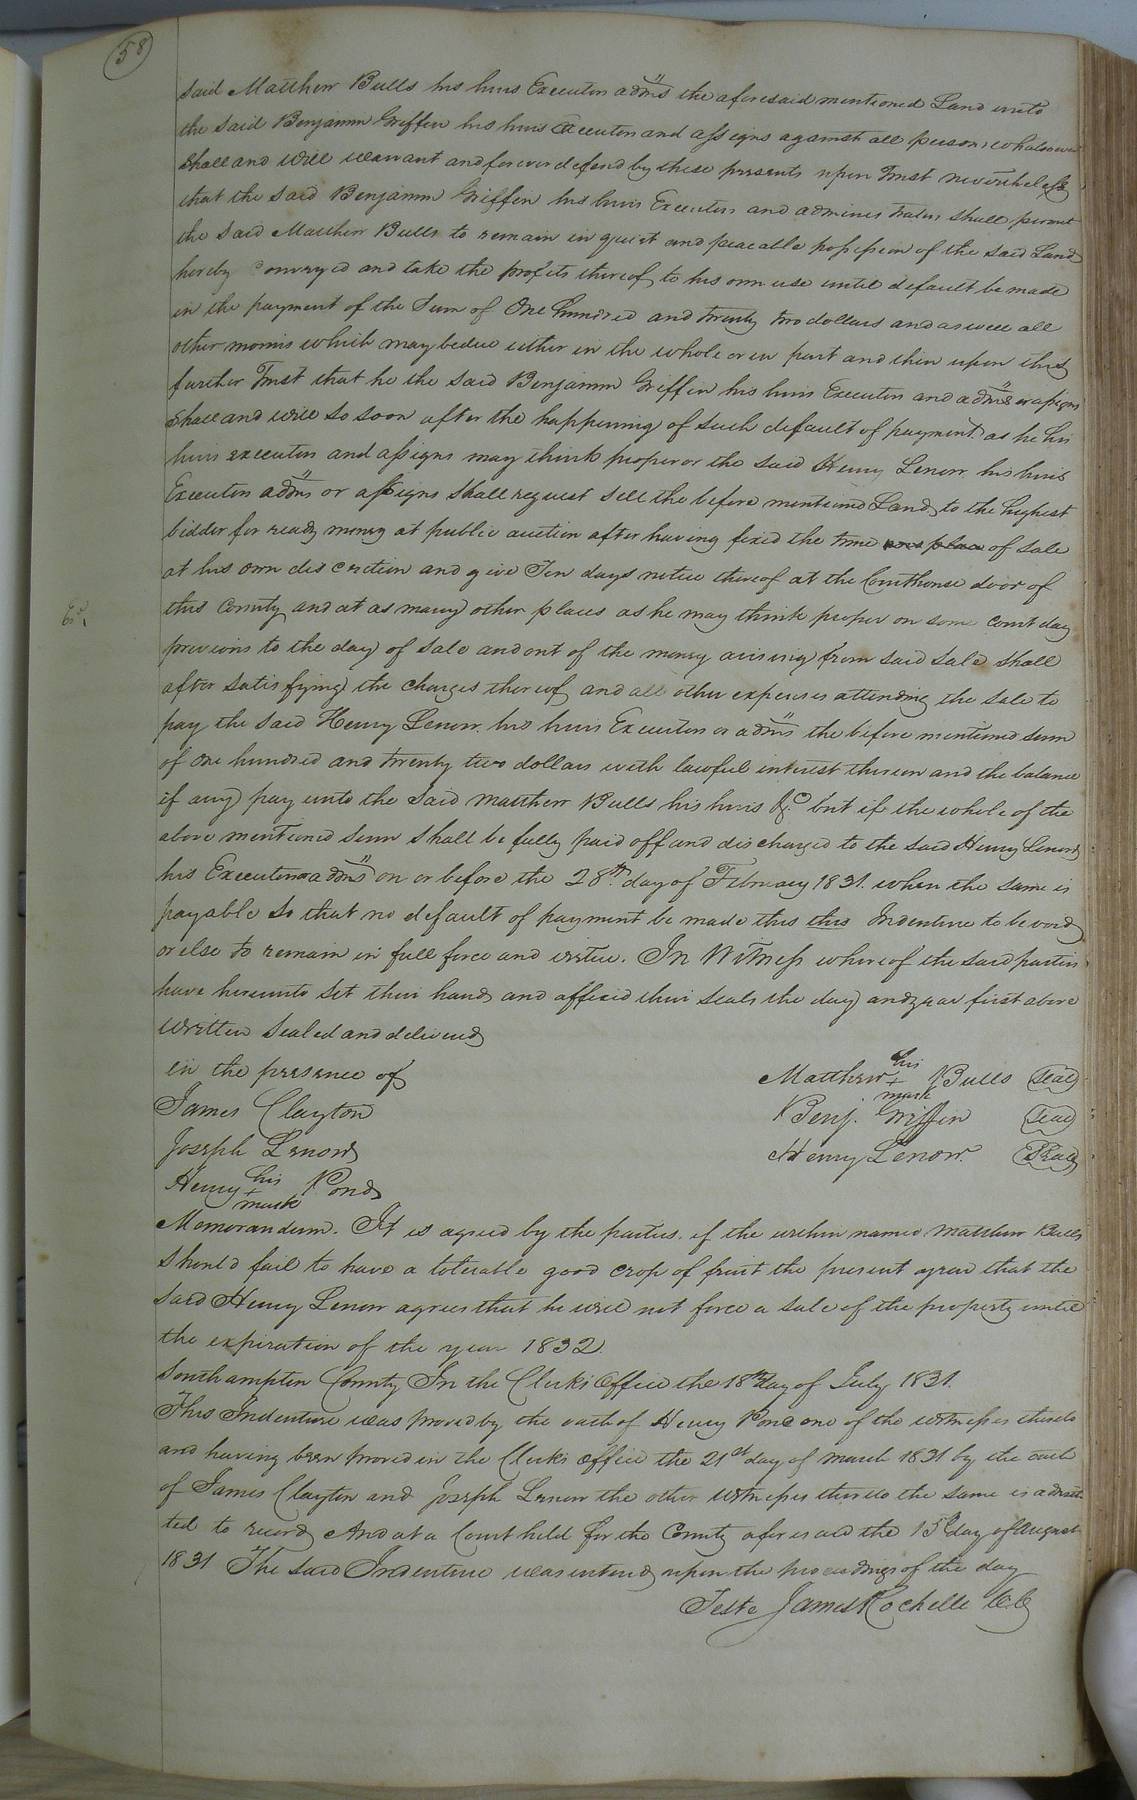 58
said Matthew Bulls his heirs Executors admrs the aforesaid mentioned Land unto
the said Benjamin Griffin his heirs Executors and assigns against all persons whatsoever
shall and will warrant and forever defend by these presents upon Trust nevertheless
that the said Benjamin Griffin his heirs Executors and administrators shall permit
the said Matthew Bulls to remain in quiet and peacable possession of the said Land
hereby Conveyed and take the profits thereof to his own use until default be made
in the payment of the Sum of One hundred and twenty two dollars and as well all
other monies which may be due either in the whole or in part and then upon this
further Trust that he the said Benjamin Griffin his heirs Executors and admrs or assigns
shall and will so soon after the happening of such default of payment as he his
heirs executors and assigns may think proper or the said Henry Lenow his heirs
Executors admrs or assigns shall request sell the before mentioned Land to the highest
bidder for ready money at public auction after having fixed the time and place of sale
at his own discretion and give Ten days notice thereof at the Courthouse door of
this County and at as many other places as he may think proper on some court day
previous to the day of sale and out of the money arising from said sale shall
after satisfying the charges thereof and all other expenses attending the sale to
pay the said Henry Lenow his heirs Executors or admrs the before mentioned sum
of one hundred and twenty two dollars with lawful interest thereon and the balance
if any pay unto the said Matthew Bulls his heirs &c but if the whole of the
above mentioned sum shall be fully paid off and discharged to the said Henry Lenow
his Executors admrs on or before the 28th day of February 1831 when the same is
payable so that no default of payment be made this this Indenture to be void
or else to remain in full force and virtue. In Witness whereof the said parties
have hereunto set their hands and affixed their seals the day and year first above
written Sealed and delivered
in the presence of
James Clayton
Joseph Lenow
Henry his + mark Pond
Matthew his + mark Bulls Seal
Benj. Griffin Seal
Henry Lenow. Seal
Memorandum. It is agreed by the parties. if the within named Matthew Bulls
should fail to have a tolerable good crop of fruit the present year that the
said Henry Lenow agrees that he will not force a sale of the property until
the expiration of the year 1832.
Southampton County In the Clerks Office the 18th day of July 1831.
This Indenture was proved by the oath of Henry Pond one of the witnesses thereto
and having been proved in the Clerks office the 21st day of March 1831 by the oath
of James Clayton and Joseph Lenow the other witnesses thereto the same is admit-
ted to record And at a Court held for the County aforesaid the 15th day of August
1831 The said Indenture was entered upon the proceedings of the day
Teste James Rochelle